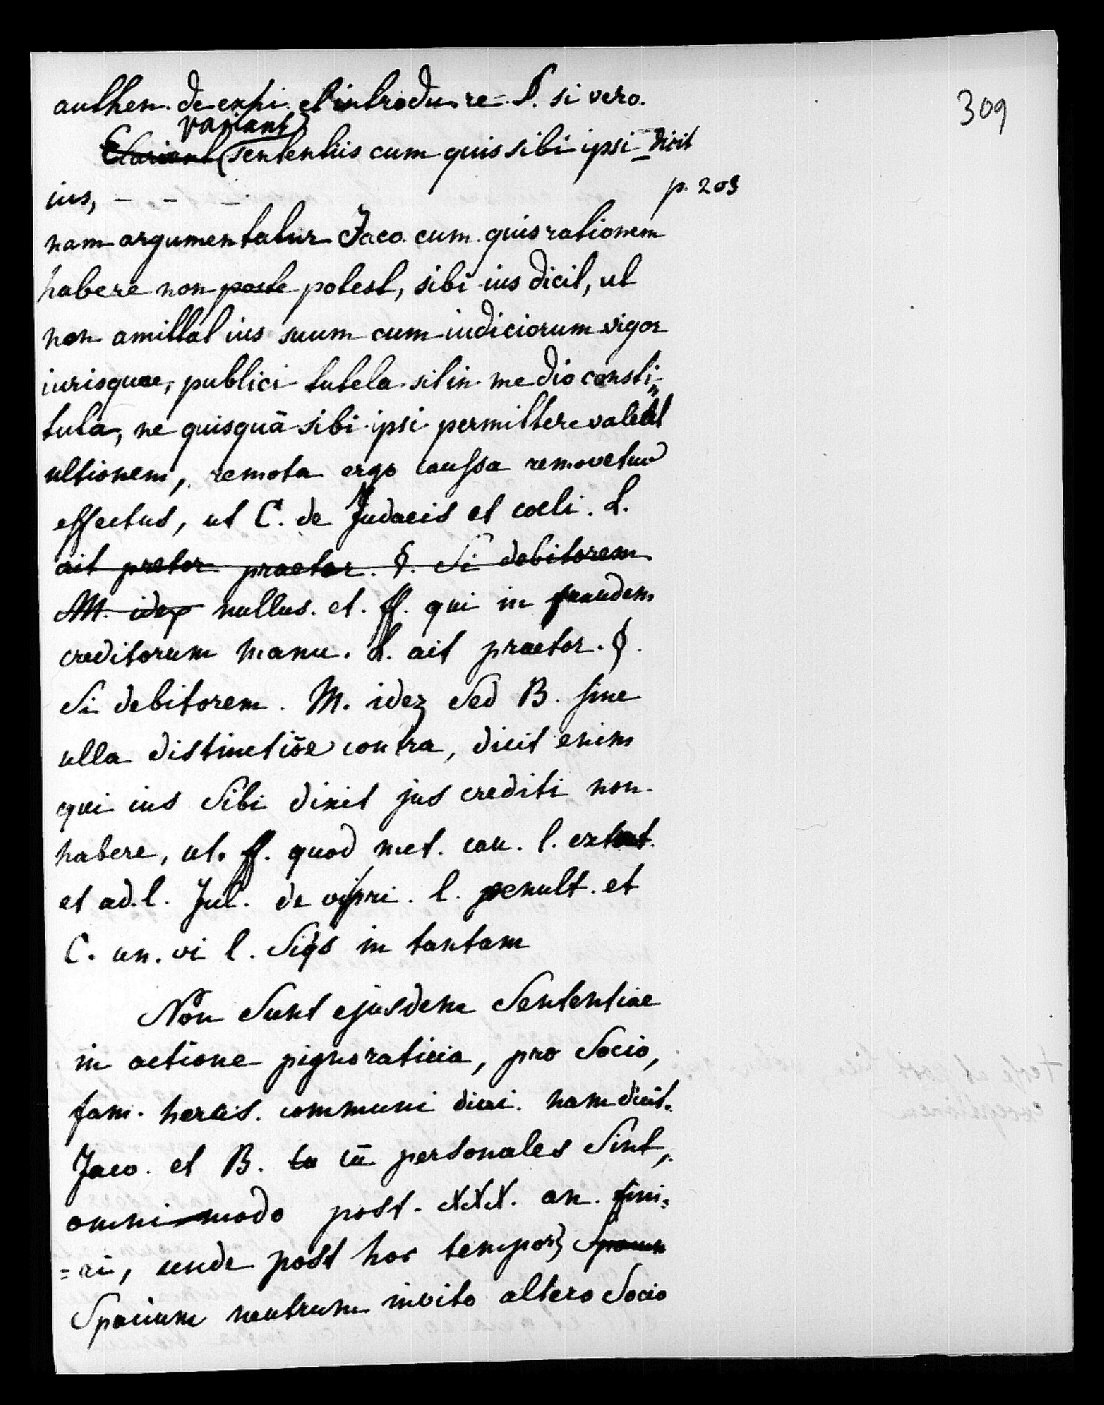 309
authen. de exhi. et introdu. re= §. si vero.
variant
Elarient (sententiis cum quis sibi ipsi dicit
p. 203
ius, – – –
nam argumentatur Jaco. cum quis rationem
habere non poste potest, sibi ius dicit, ut
non amittat ius suum cum iudiciorum vigor
iurisquae, publici tutela sit in medio consti-
tuta, ne quisquā sibi ipsi permittere valeat
ultionem, remota ergo caussa removetur
effectus, ut C. de Judaeis et coeli. l.
ait pretor praetor. §. Si debitorem
M. idez nullus. et. ff. qui in fraudem
creditorum manu. l. ait praetor. §.
Si debitorem. M. idez Sed B. sine
ulla distinctiōe contra, dicit enim
qui ius Sibi dixit jus crediti non
habere, ut. ff. quod met. cau. l. extat.
et ad. l. Jul. de vi pri. l. penult. et
C. un. vi l. Siqs in tantam
Non Sunt ejusdem Sententiae
in actione pignoraticia, pro Socio,
fam. hercis. communi divi. nam dicit.
Jaco. et B. cū personales Sint,
omni modo post. XXX. an. fini=
=ri, unde post hoc tempor
Spacium neutrum invito altero Socio